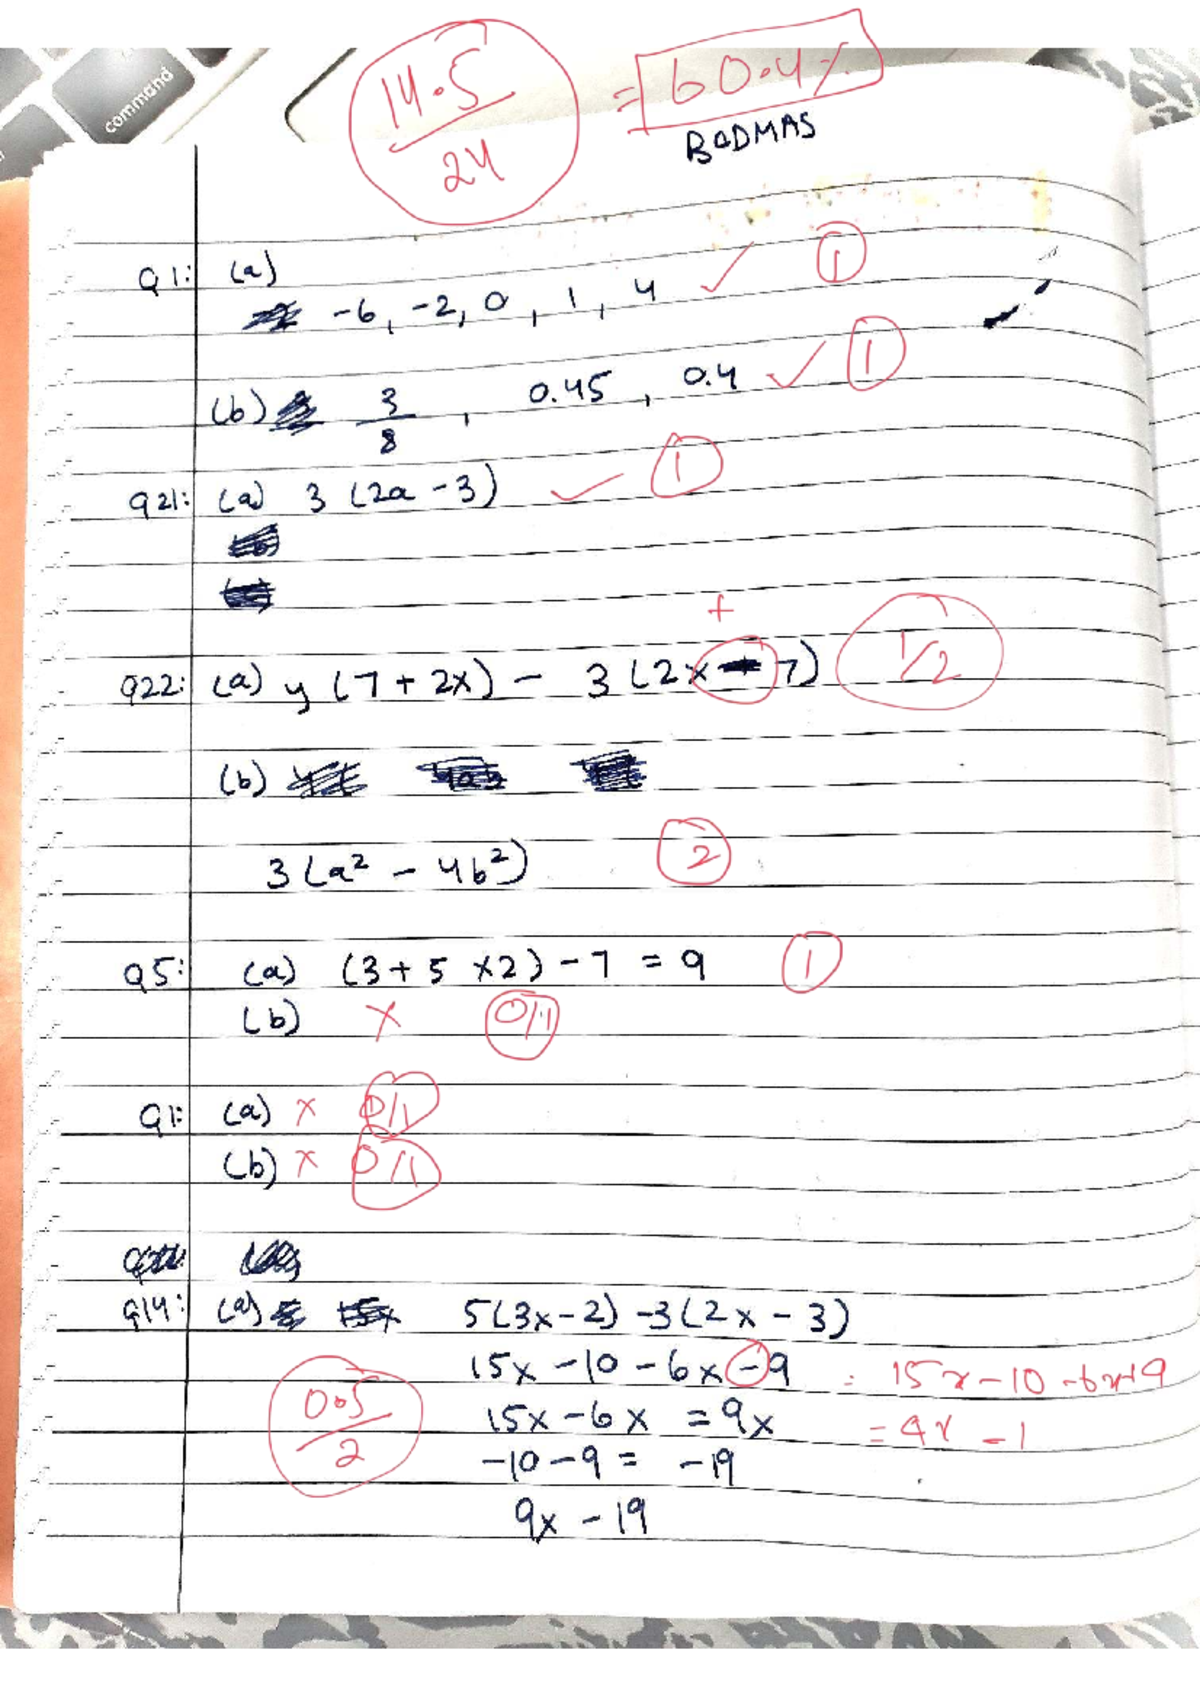 command
14.5/24 = 60.4%
BODMAS
Q1: (a)
-6, -2, 0, 1, 4 ✓ 1
(b) 3/8, 0.45, 0.4 ✓ 1
Q21: (a) 3 (2a - 3) ✓ 1
+
Q22: (a) y (7 + 2x) - 3 (2x - 7) 1/2
(b)
3 (a² - 4b²) 2
Q5: (a) (3 + 5 × 2) - 7 = 9 1
(b) × 0/1
Q1: (a) × 0/1
(b) × 0/1
Q14: (a) 5(3x - 2) - 3(2x - 3)
15x - 10 - 6x - 9 = 15x - 10 - 6x + 9
0.5/2
15x - 6x = 9x = 9x - 1
-10 - 9 = -19
9x - 19